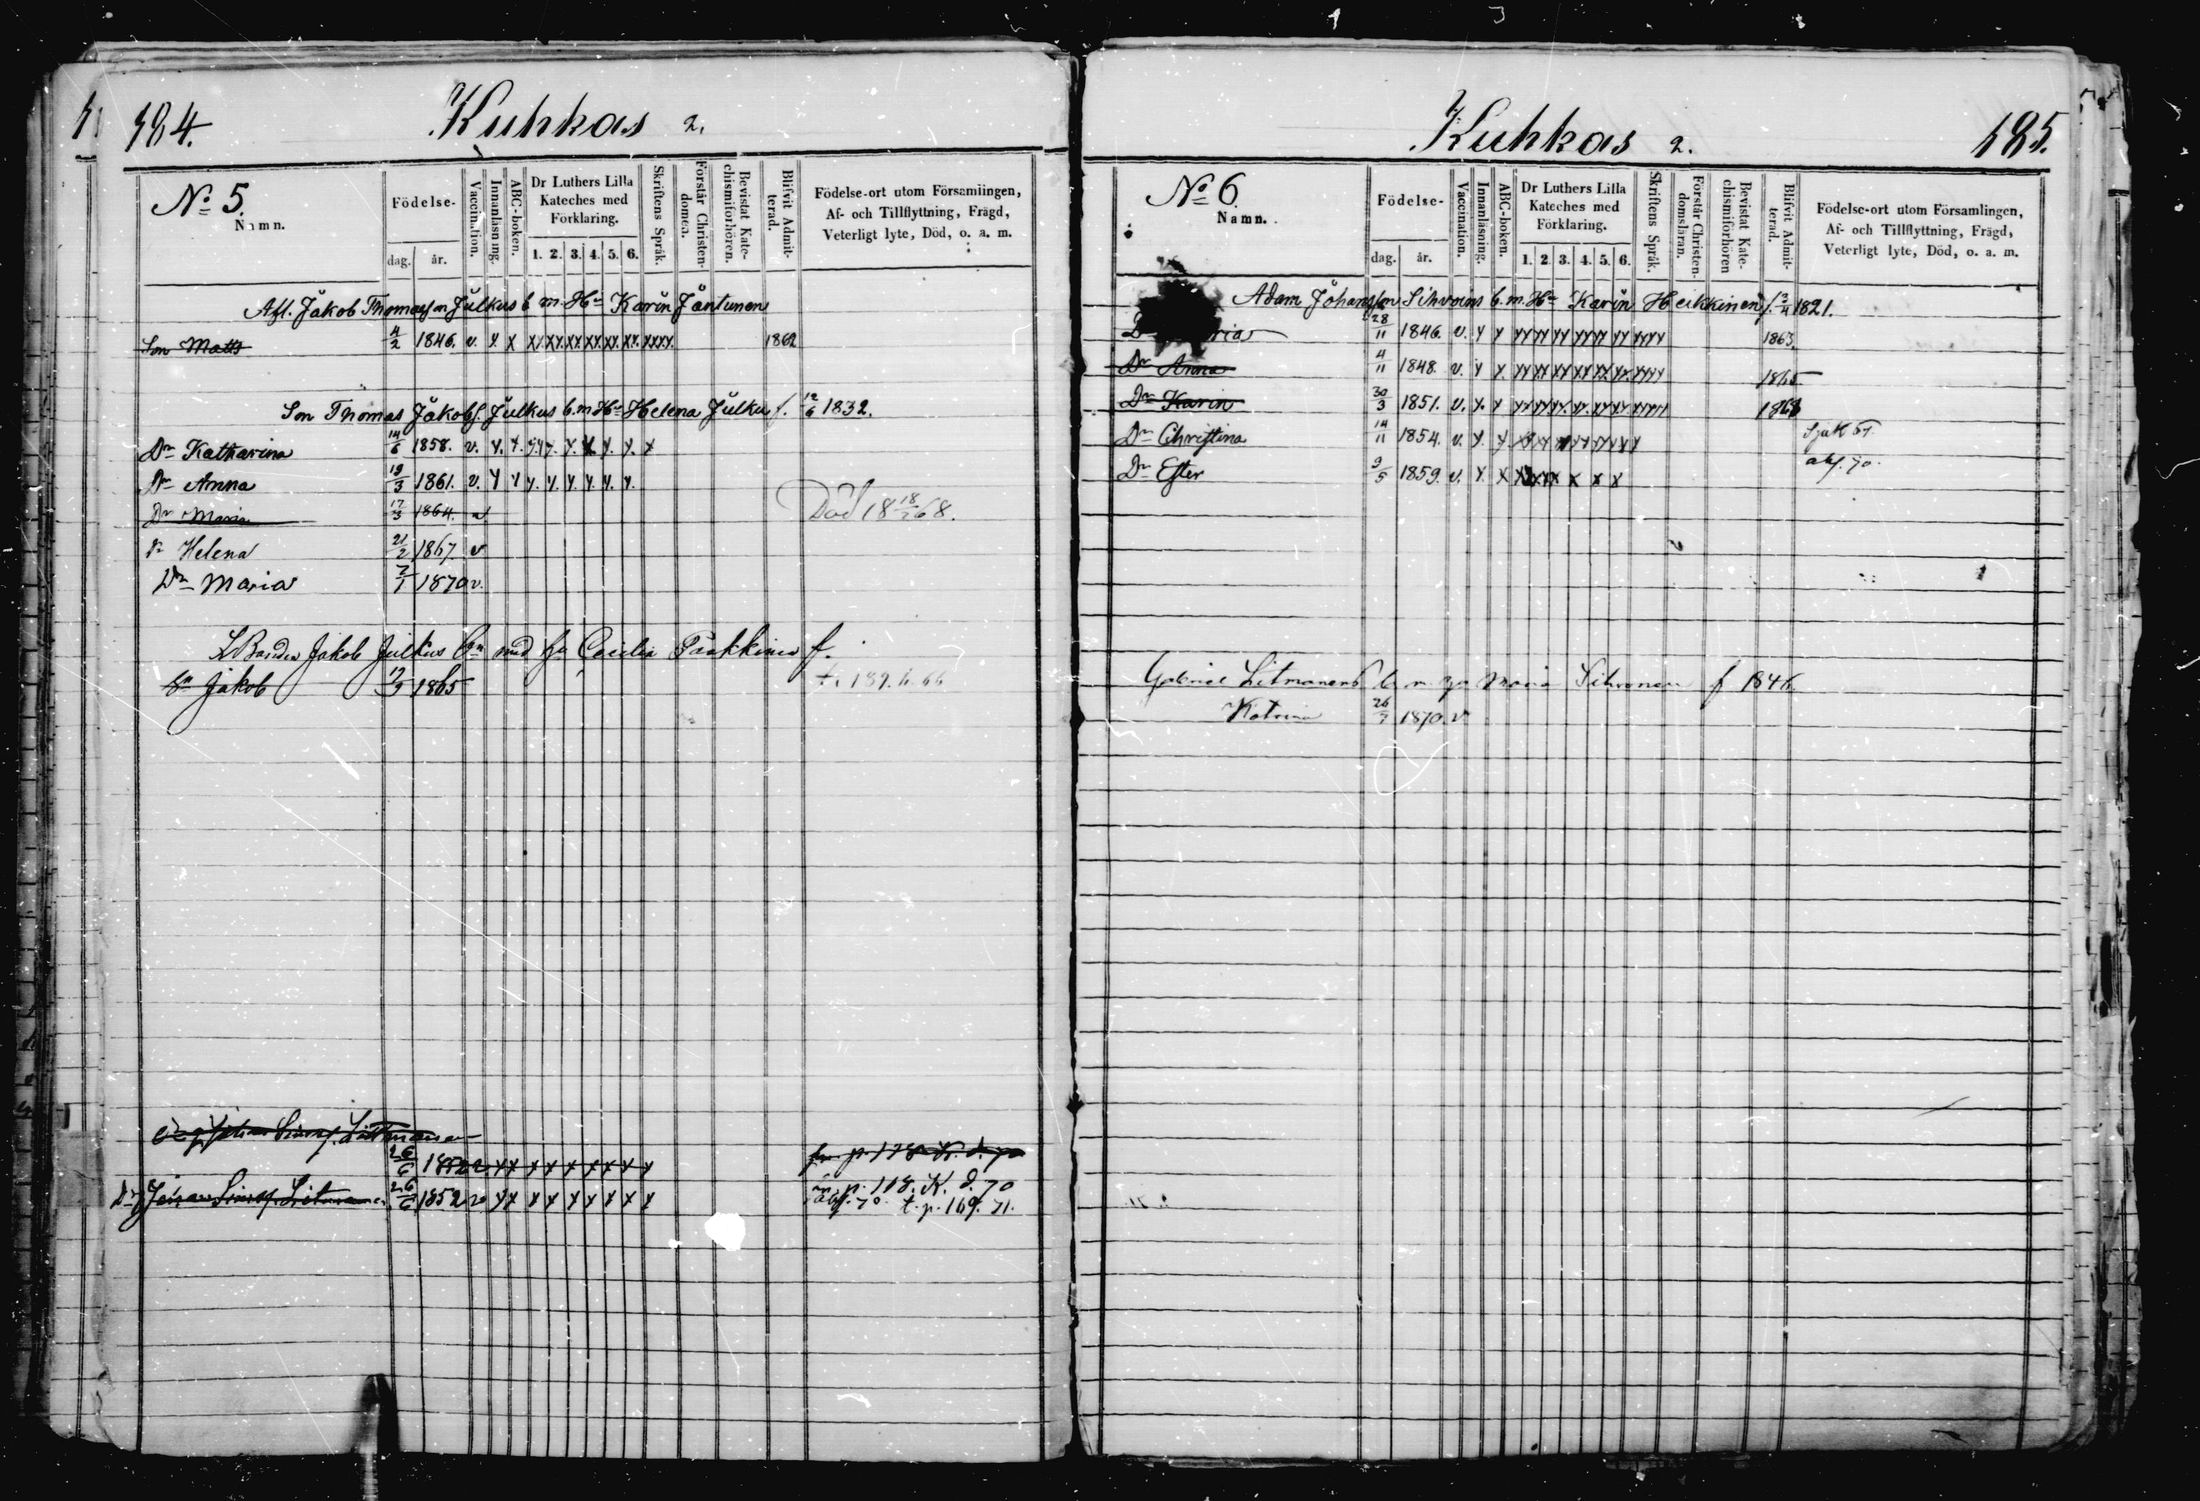 184.
Kuhkas 2.
No 5.
Namn.
Födelse-
dag. år.
Vaccination.
Innanläsning.
ABC-boken.
Dr Luthers Lilla Kateches med Förklaring.
1. 2. 3. 4. 5. 6.
Skriftens Språk.
Förstår Christendomen.
Bevistat Katechismiförhören.
Blifvit Admitterad.
Födelse-ort utom Församlingen,
Af- och Tillflyttning, Frägd,
Veterligt lyte, Död, o. a. m.
Afl. Jakob Thomasson Julkus b. m. Hu Karin Jäntunen
Son Matts 4/2 1846. v. x x xx xx xx xx xx xx xxxx 1862
Son Thomas Jakobs. Julkus b. m Hu Helena Julku f. 12/6 1832.
Dr Katharina 14/6 1858. v. x. x. x x. x. x. x. x
Dr Anna 19/3 1861. v. x x x. x. x. x. x. x.
Dr Maria 17/3 1864. v Död 18 18/2 68.
Dr Helena 21/2 1867 v
Dr Maria 7/1 1870 v.
Jakob Julkus bn med hu Cecilia Paakkinen f.
Sn Jakob 1865
Litmanen
26/6 1852 v x x x x x x x x x p. 118 K. d. 70
Dr Johan Simsf. Litmanen 26/6 1852 v x x x x x x x x x p. 118. K. d. 70
t. p. 169. 71.
185.
Kuhkas 2.
No 6.
Namn.
Födelse-
dag. år.
Vaccination.
Innanläsning.
ABC-boken.
Dr Luthers Lilla Kateches med Förklaring.
1. 2. 3. 4. 5. 6.
Skriftens Språk.
Förstår Christendomsläran.
Bevistat Katechismiförhören
Blifvit Admitterad.
Födelse-ort utom Församlingen,
Af- och Tillflyttning, Frägd,
Veterligt lyte, Död, o. a. m.
Adam Johansson Sihvoins b. m. Hu Karin Heikkinen f. 3/4 1821.
ria 28/11 1846. v. x x xx xx xx xx xx xx xxxx 1863.
Dr Anna 4/11 1848. v. x x. xx xx xx xx xx xx xxxx 1865
Dr Karin 30/3 1851. v. x. x xx xx xx xx xx xx xxxx 1868
Dr Christina 14/11 1854. v. x. x. xx xx xx xx x x
Dr Ester 9/5 1859. v. x. x x xxx x x x
Gabriel Litmanens b. m. hu Maria Sihvonen f 1846
Katrina 26/7 1870. v